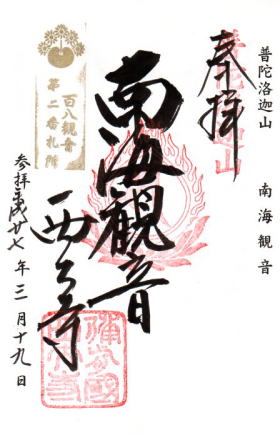 普陀洛迦山　南海観音
奉拝
南海観音
西大寺
百八観音
第二番札所
参拝平成廿七年三月十九日